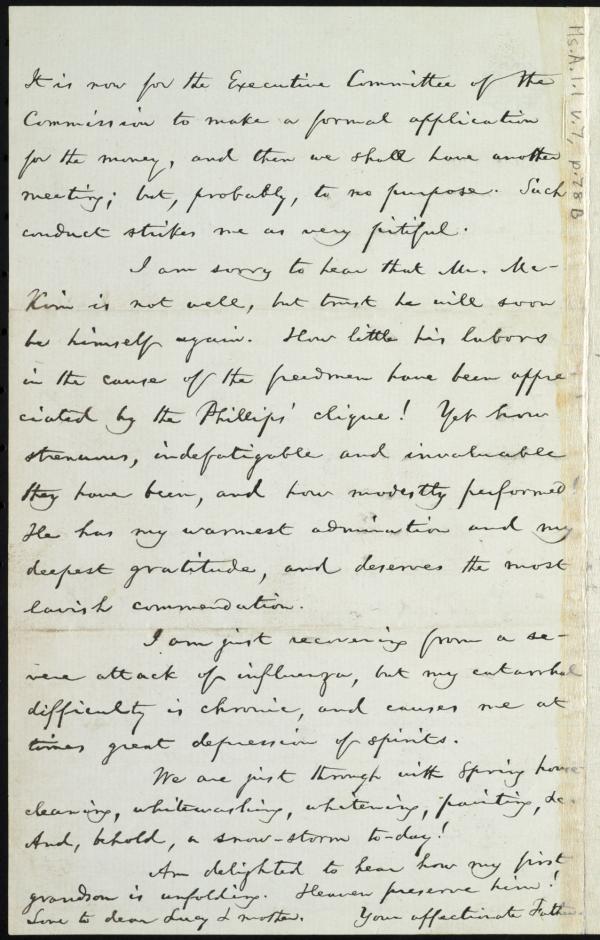 It is now for the Executive Committee of the
Commission to make a formal application
for the money, and then we shall have another
meeting; but, probably, to no purpose. Such
conduct strikes me as very pitiful.
I am sorry to hear that Mr. Mc-
Kim is not well, but trust he will soon
be himself again. How little his labors
in the cause of the freedmen have been appre-
ciated by the Phillips' clique! Yet how
strenuous, indefatigable and invaluable
they have been, and how modestly performed!
He has my warmest admiration and my
deepest gratitude, and deserves the most
lavish commendation.
I am just recovering from a se-
vere attack of influenza, but my catarrhal
difficulty is chronic, and causes me at
times great depression of spirits.
We are just through with Spring house
cleaning, whitewashing, whitening, painting, &c.
And, behold, a snow-storm to-day!
Am delighted to hear how my first
grandson is unfolding. Heaven preserve him!
Love to dear Lucy & mother. Your affectionate Father.
Ms. A. 1.1 v. 7, p. 78 B